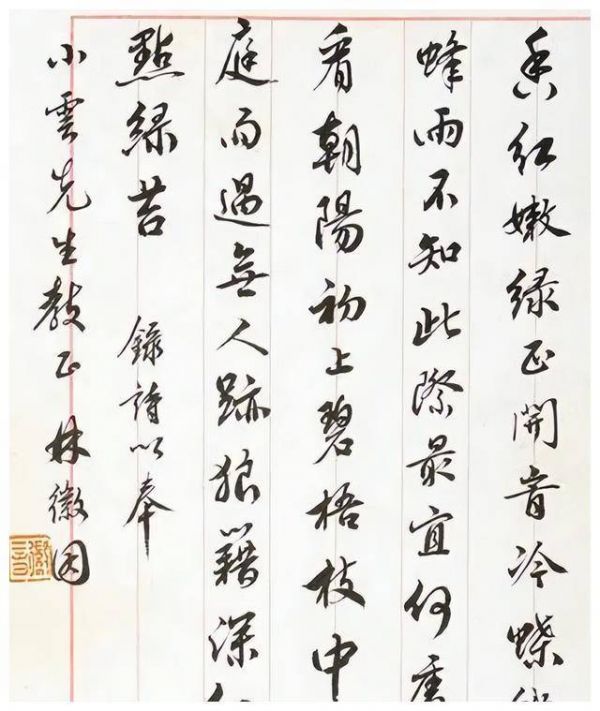 香紅嫩綠正開旹冷蝶
蜂兩不知此際最宜何處
看朝陽初上碧梧枝中
庭雨過無人跡狼籍深
點綠苔 錄詩以奉
小雲先生教正 林徽因